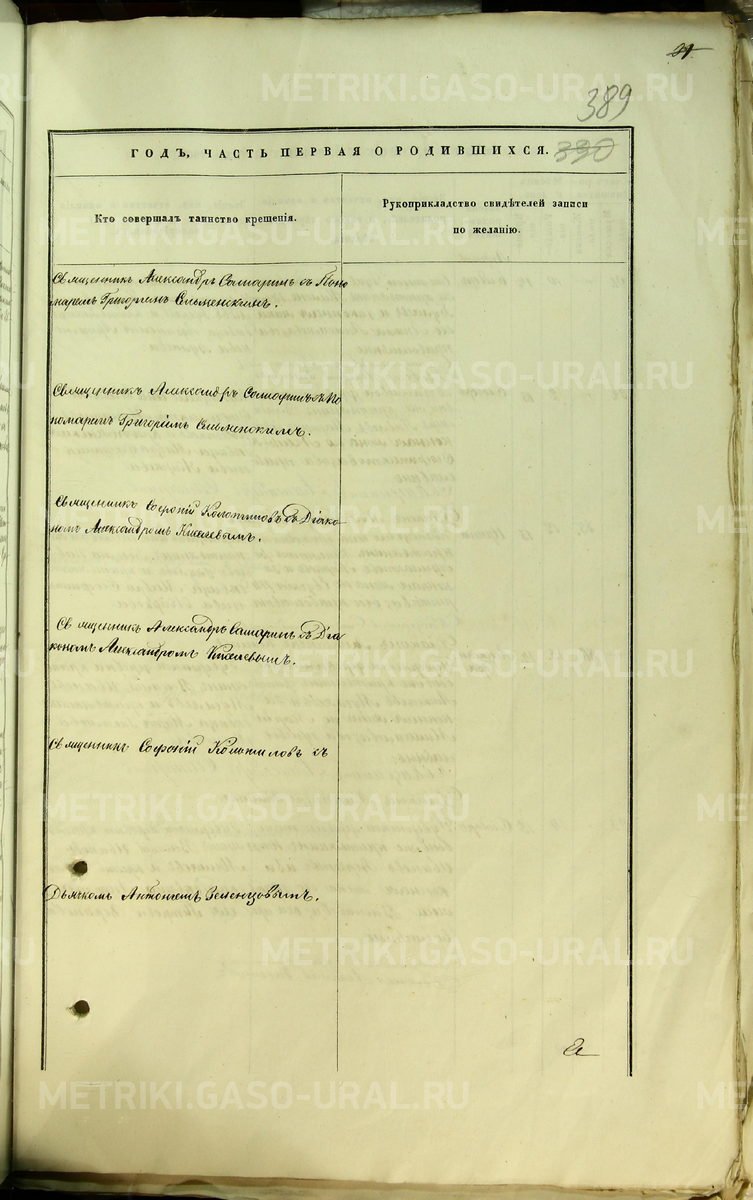 389
ГОДЪ, ЧАСТЬ ПЕРВАЯ О РОДИВШИХСЯ. 330
Кто совершалъ таинство крещенія.
Рукоприкладство свидѣтелей записи
по желанію.
Священникъ Александръ Самаринъ съ Поно
маремъ Григоріемъ Ельменскимъ.
Священникъ Александръ Самаринъ съ По
номаремъ Григоріемъ Ельменскимъ.
Священникъ Софоній Колотиловъ съ Діако
номъ Александромъ Киселевымъ.
Священникъ Александръ Самаринъ съ Діа
кономъ Александромъ Киселевымъ.
Священникъ Софоній Колотиловъ съ
Дьячкомъ Антоніемъ Зеленцовымъ.
METRIKI.GASO-URAL.RU
METRIKI.GASO-URAL.RU
METRIKI.GASO-URAL.RU
METRIKI.GASO-URAL.RU
METRIKI.GASO-URAL.RU
METRIKI.GASO-URAL.RU
METRIKI.GASO-URAL.RU